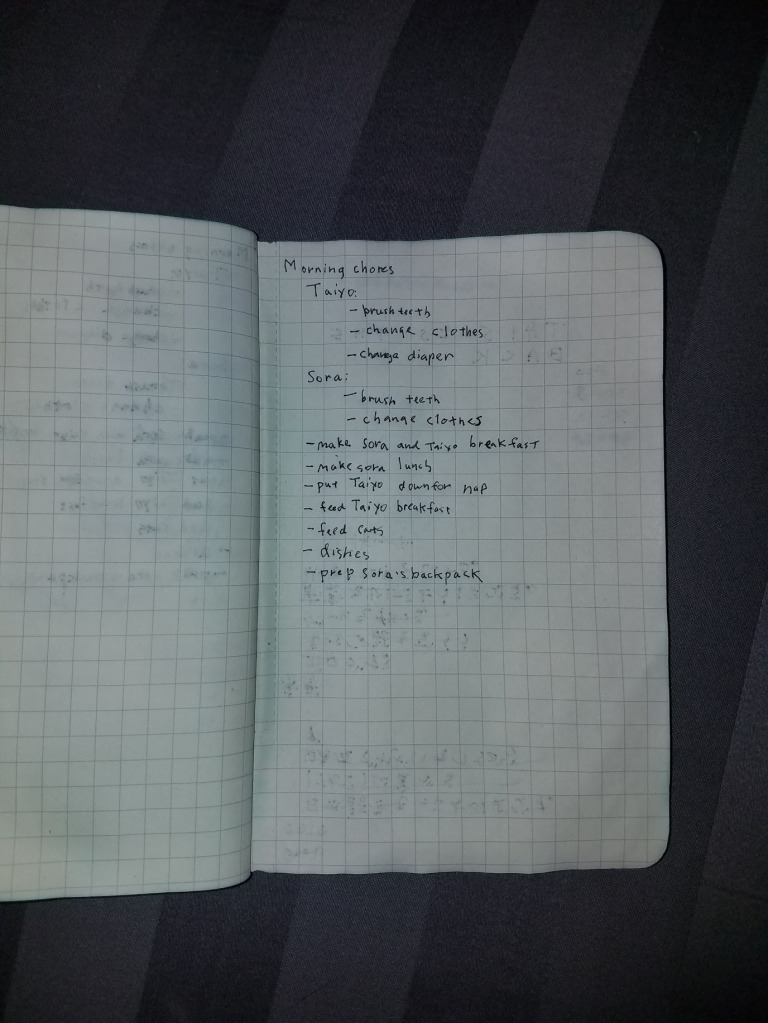 Morning chores
Taiyo:
- brush teeth
- change clothes
- change diaper
Sora:
- brush teeth
- change clothes
- make Sora and Taiyo breakfast
- make sora lunch
- put Taiyo down for nap
- feed Taiyo breakfast
- feed cats
- dishes
- prep Sora's backpack